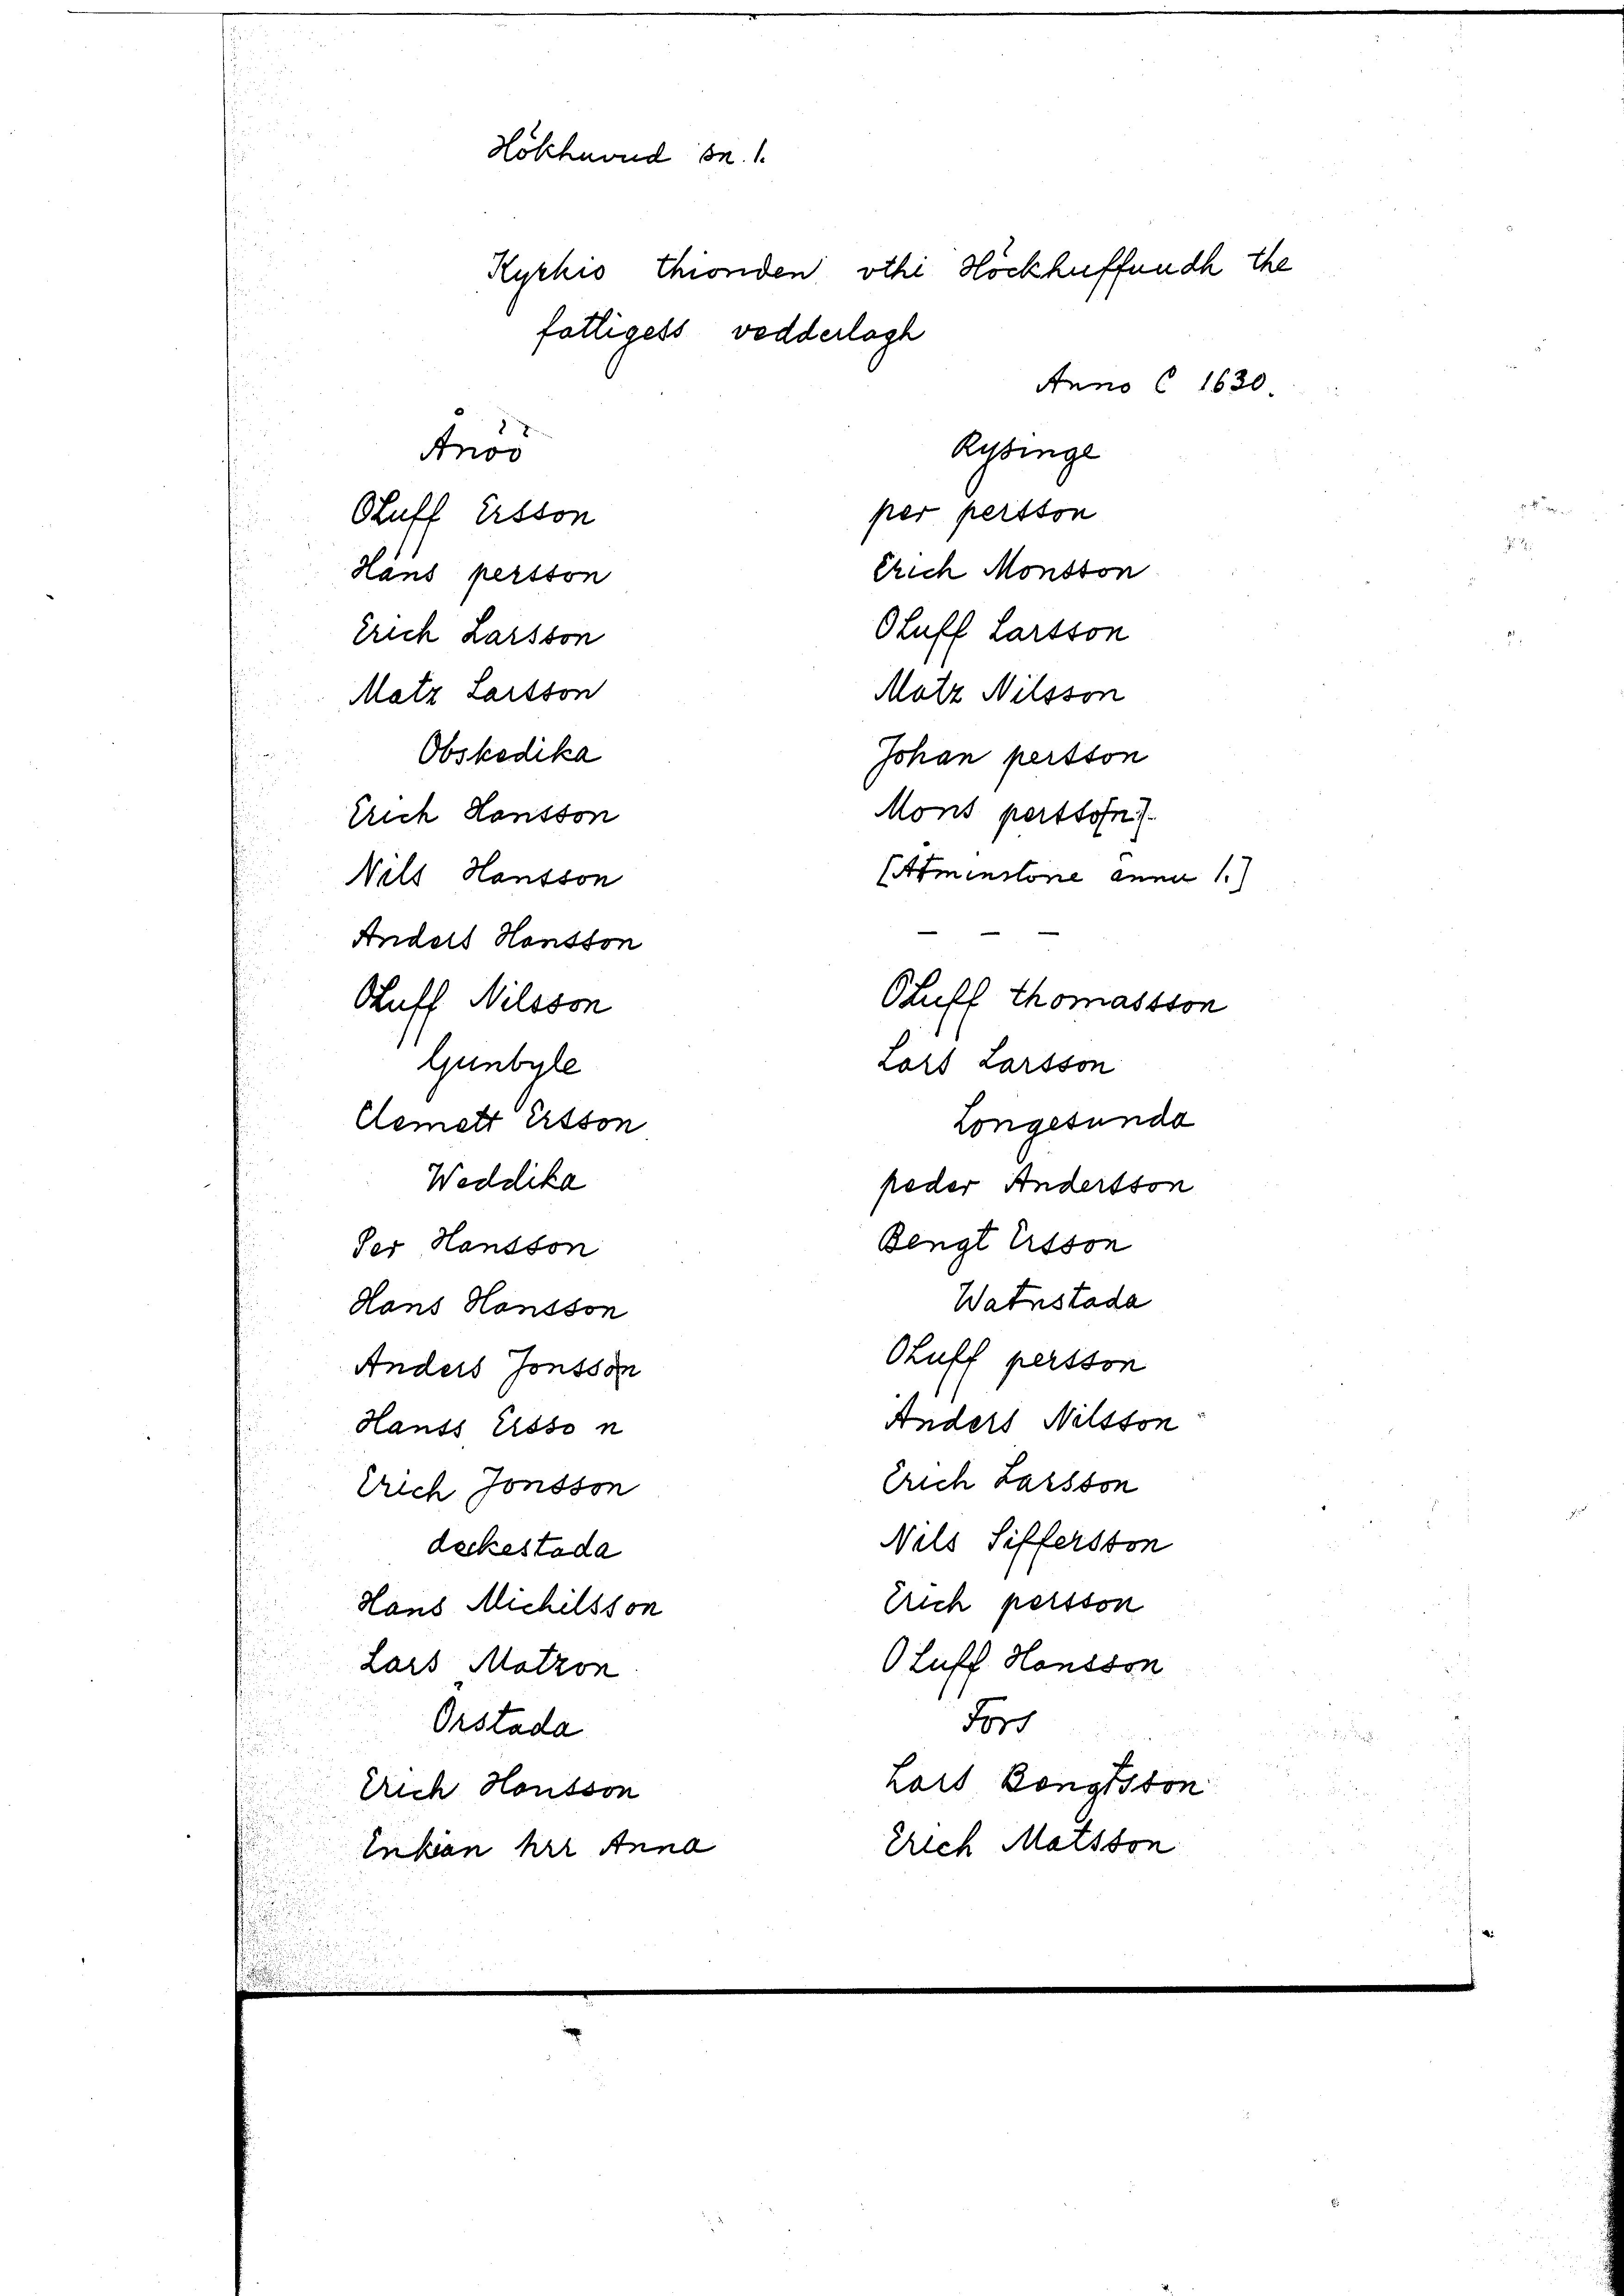 Hökhuvud sn. 1.
Kyrkio thionden vthi Höckhuffundh the
fattigess vedderlagh
Anno C 1630.
Ånöö
Oluff Ersson
Hans persson
Erich Larsson
Matz Larsson
Obskedika
Erich Hansson
Nils Hansson
Anders Hansson
Oluff Nilsson
Gunbyle
Clemett Ersson
Weddika
Per Hansson
Hans Hansson
Anders Jonsson
Hanss Ersson
Erich Jonsson
deckestada
Hans Michilsson
Lars Matzon
Örstada
Erich Hansson
Enkian hrr Anna
Rysinge
per persson
Erich Monsson
Oluff Larsson
Matz Nilsson
Johan persson
Mons persson
[Åtminstone ännu 1.]
- - -
Oluff thomassson
Lars Larsson
Longesunda
peder Andersson
Bengt Ersson
Watnstada
Oluff persson
Anders Nilsson
Erich Larsson
Nils Siffersson
Erich persson
Oluff Hansson
Fors
Lars Bengtsson
Erich Matsson